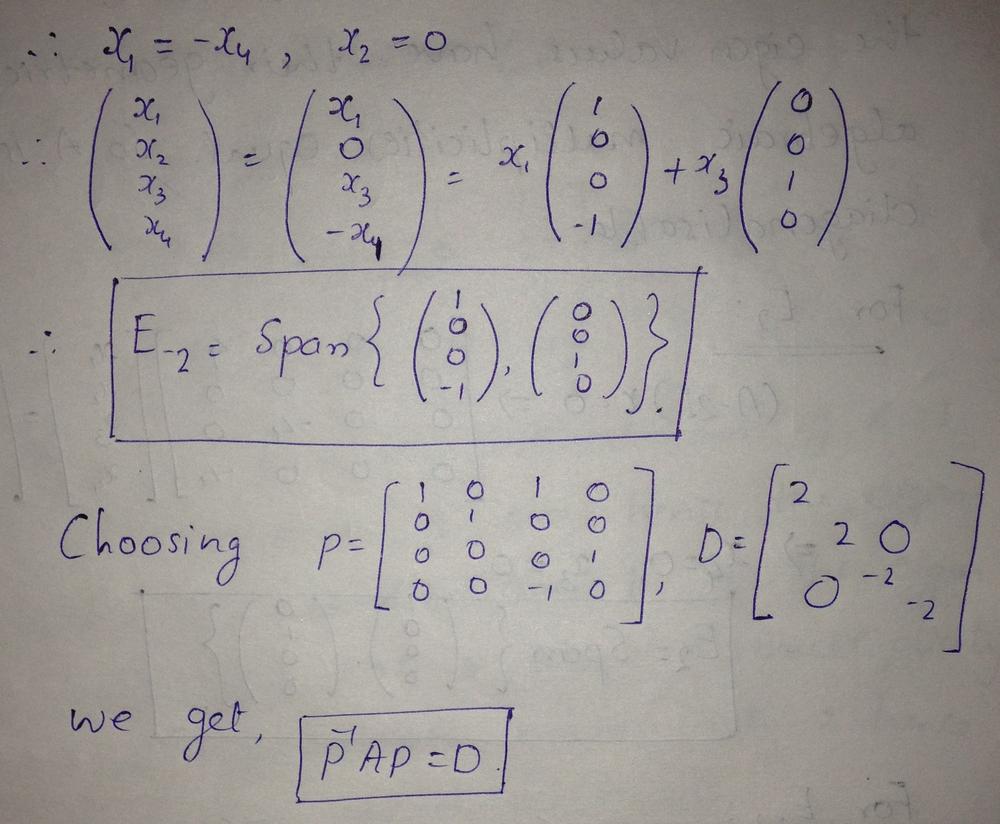 ∴ x₁ = -x₄, x₂ = 0
∴ (x₁ x₂ x₃ x₄) = (x₁ 0 x₃ -x₄) = x₁ (1 0 0 -1) + x₃ (0 0 1 0)
∴ E₋₂ = Span { (1 0 0 -1), (0 0 1 0) }.
Choosing P = [1 0 1 0; 0 1 0 0; 0 0 0 1; 0 0 -1 0], D = [2; 2 0; 0 -2; -2]
we get, P⁻¹AP = D.